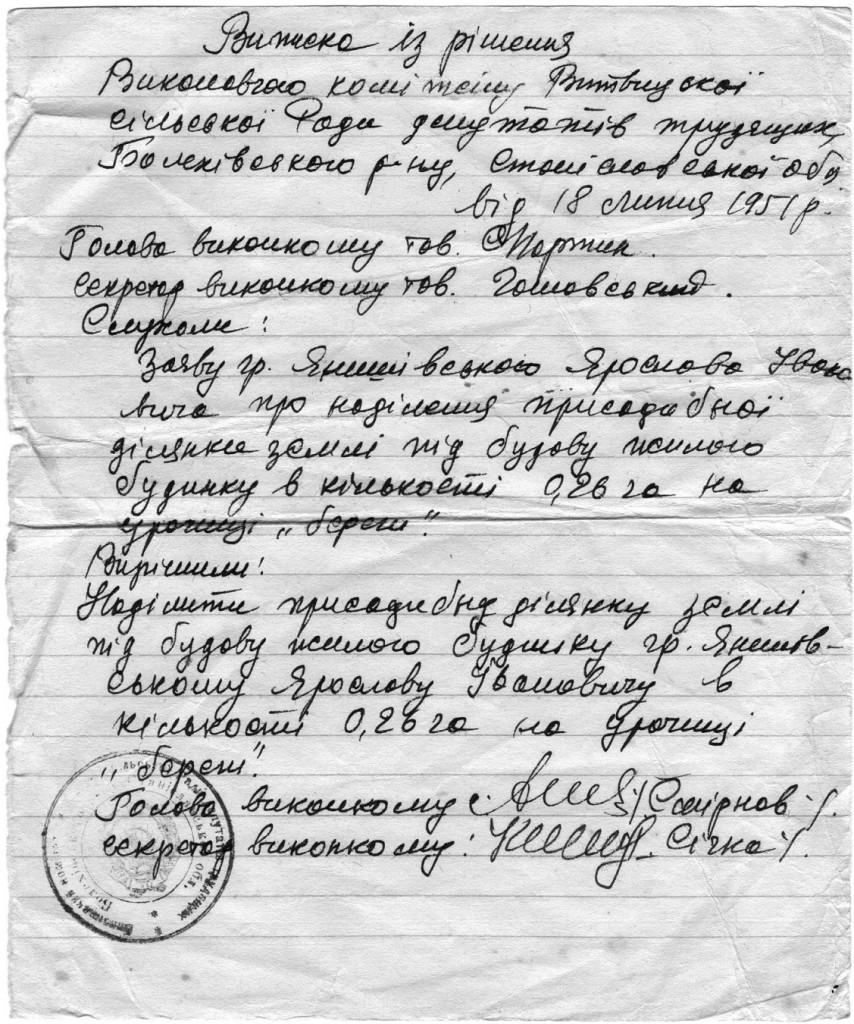 Виписка із рішення
Виконавчого комітету Витвицької
сільської Ради депутатів трудящих,
Болехівського р-ну, Станіславської обл.
від 18 липня 1951 р.
Голова виконкому тов.
секретар виконкому тов. Гошовський.
Слухали:
Заяву гр. Янишівського Ярослава Івано
вича про наділення присадибної
ділянки землі під будову жилого
будинку в кількості 0,26 га на
урочищі „берег".
Вирішили:
Наділити присадибну ділянку землі
під будову жилого будинку гр. Янишів-
ському Ярославу Івановичу в
кількості 0,26 га на урочищі
„берег".
Голова виконкому: /Смірнов/.
секретар виконкому: Січка/.